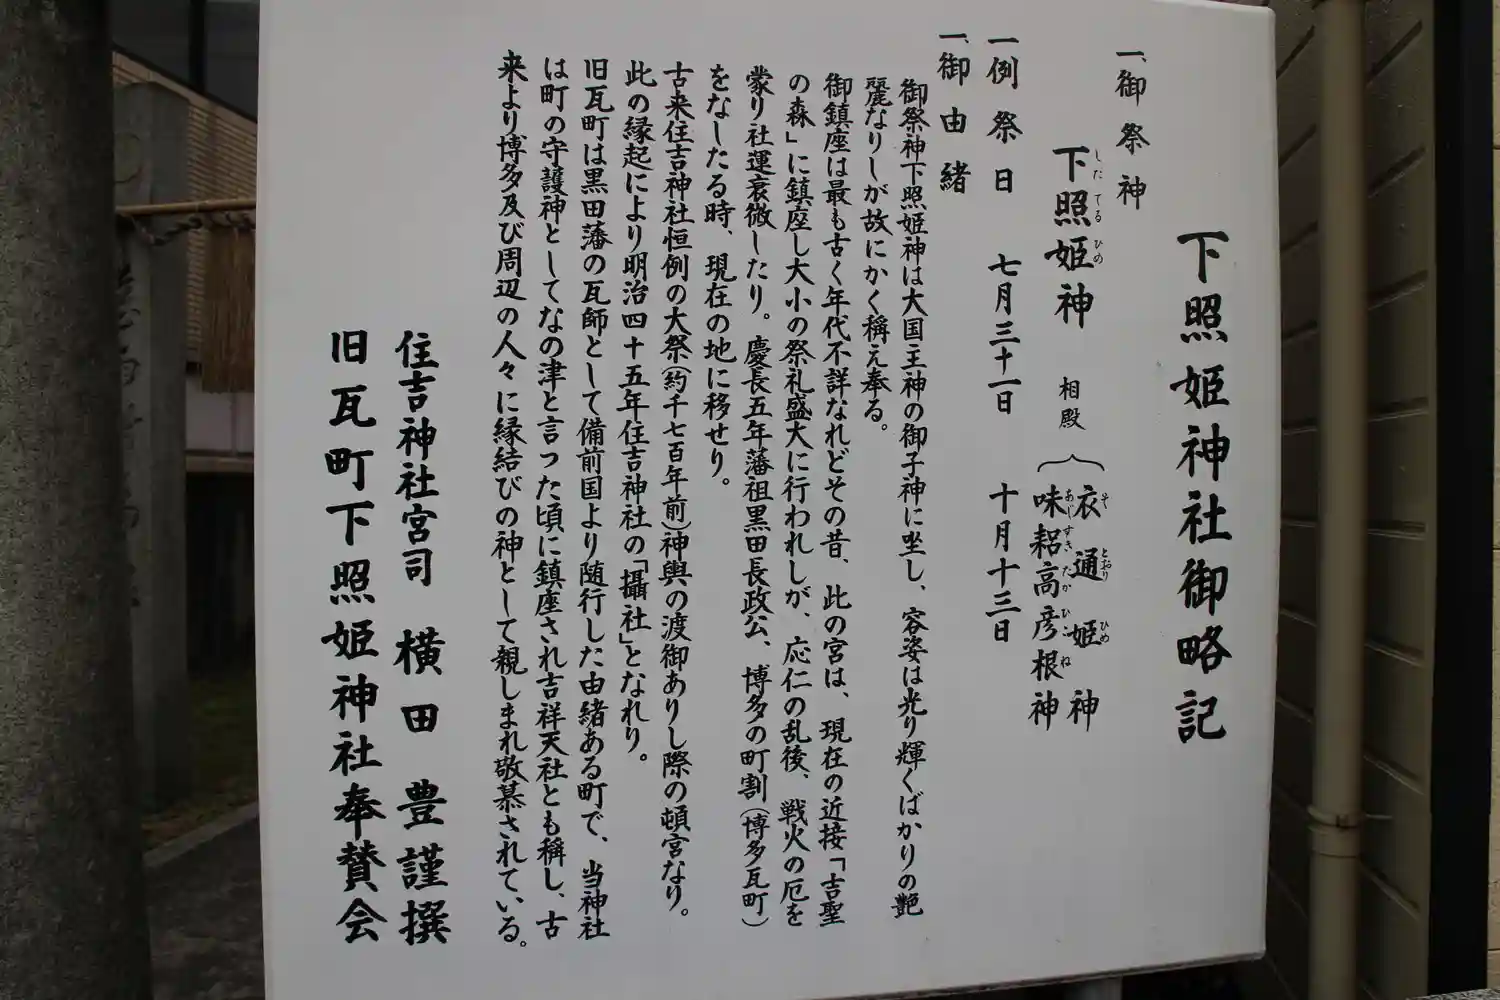 下照姫神社御略記
一、御祭神
下照姫神 相殿 衣通姫神
味耜高彦根神
しだてるひめ
そとおりひめ
あじすきたかひこね
一例祭日 七月三十一日 十月十三日
一、御由緒
御祭神下照姫神は大国主神の御子神に坐し、容姿は光り輝くばかりの艶
麗なりしが故にかく稱え奉る。
御鎮座は最も古く年代不詳なれどその昔、此の宮は、現在の近接「吉聖
の森」に鎮座し大小の祭礼盛大に行われしが、応仁の乱後、戦火の厄を
蒙り社運衰微したり。慶長五年藩祖黒田長政公、博多の町割(博多瓦町)
をなしたる時、現在の地に移せり。
古来住吉神社恒例の大祭(約千七百年前)神輿の渡御ありし際の頓宮なり。
此の縁起により明治四十五年住吉神社の「攝社」となれり。
旧瓦町は黒田藩の瓦師として備前国より随行した由緒ある町で、当神社
は町の守護神としてなの津と言った頃に鎮座され吉祥天社とも稱し、古
来より博多及び周辺の人々に縁結びの神として親しまれ敬慕されている。
住吉神社宮司 横田 豊謹撰
旧瓦町下照姫神社奉賛会